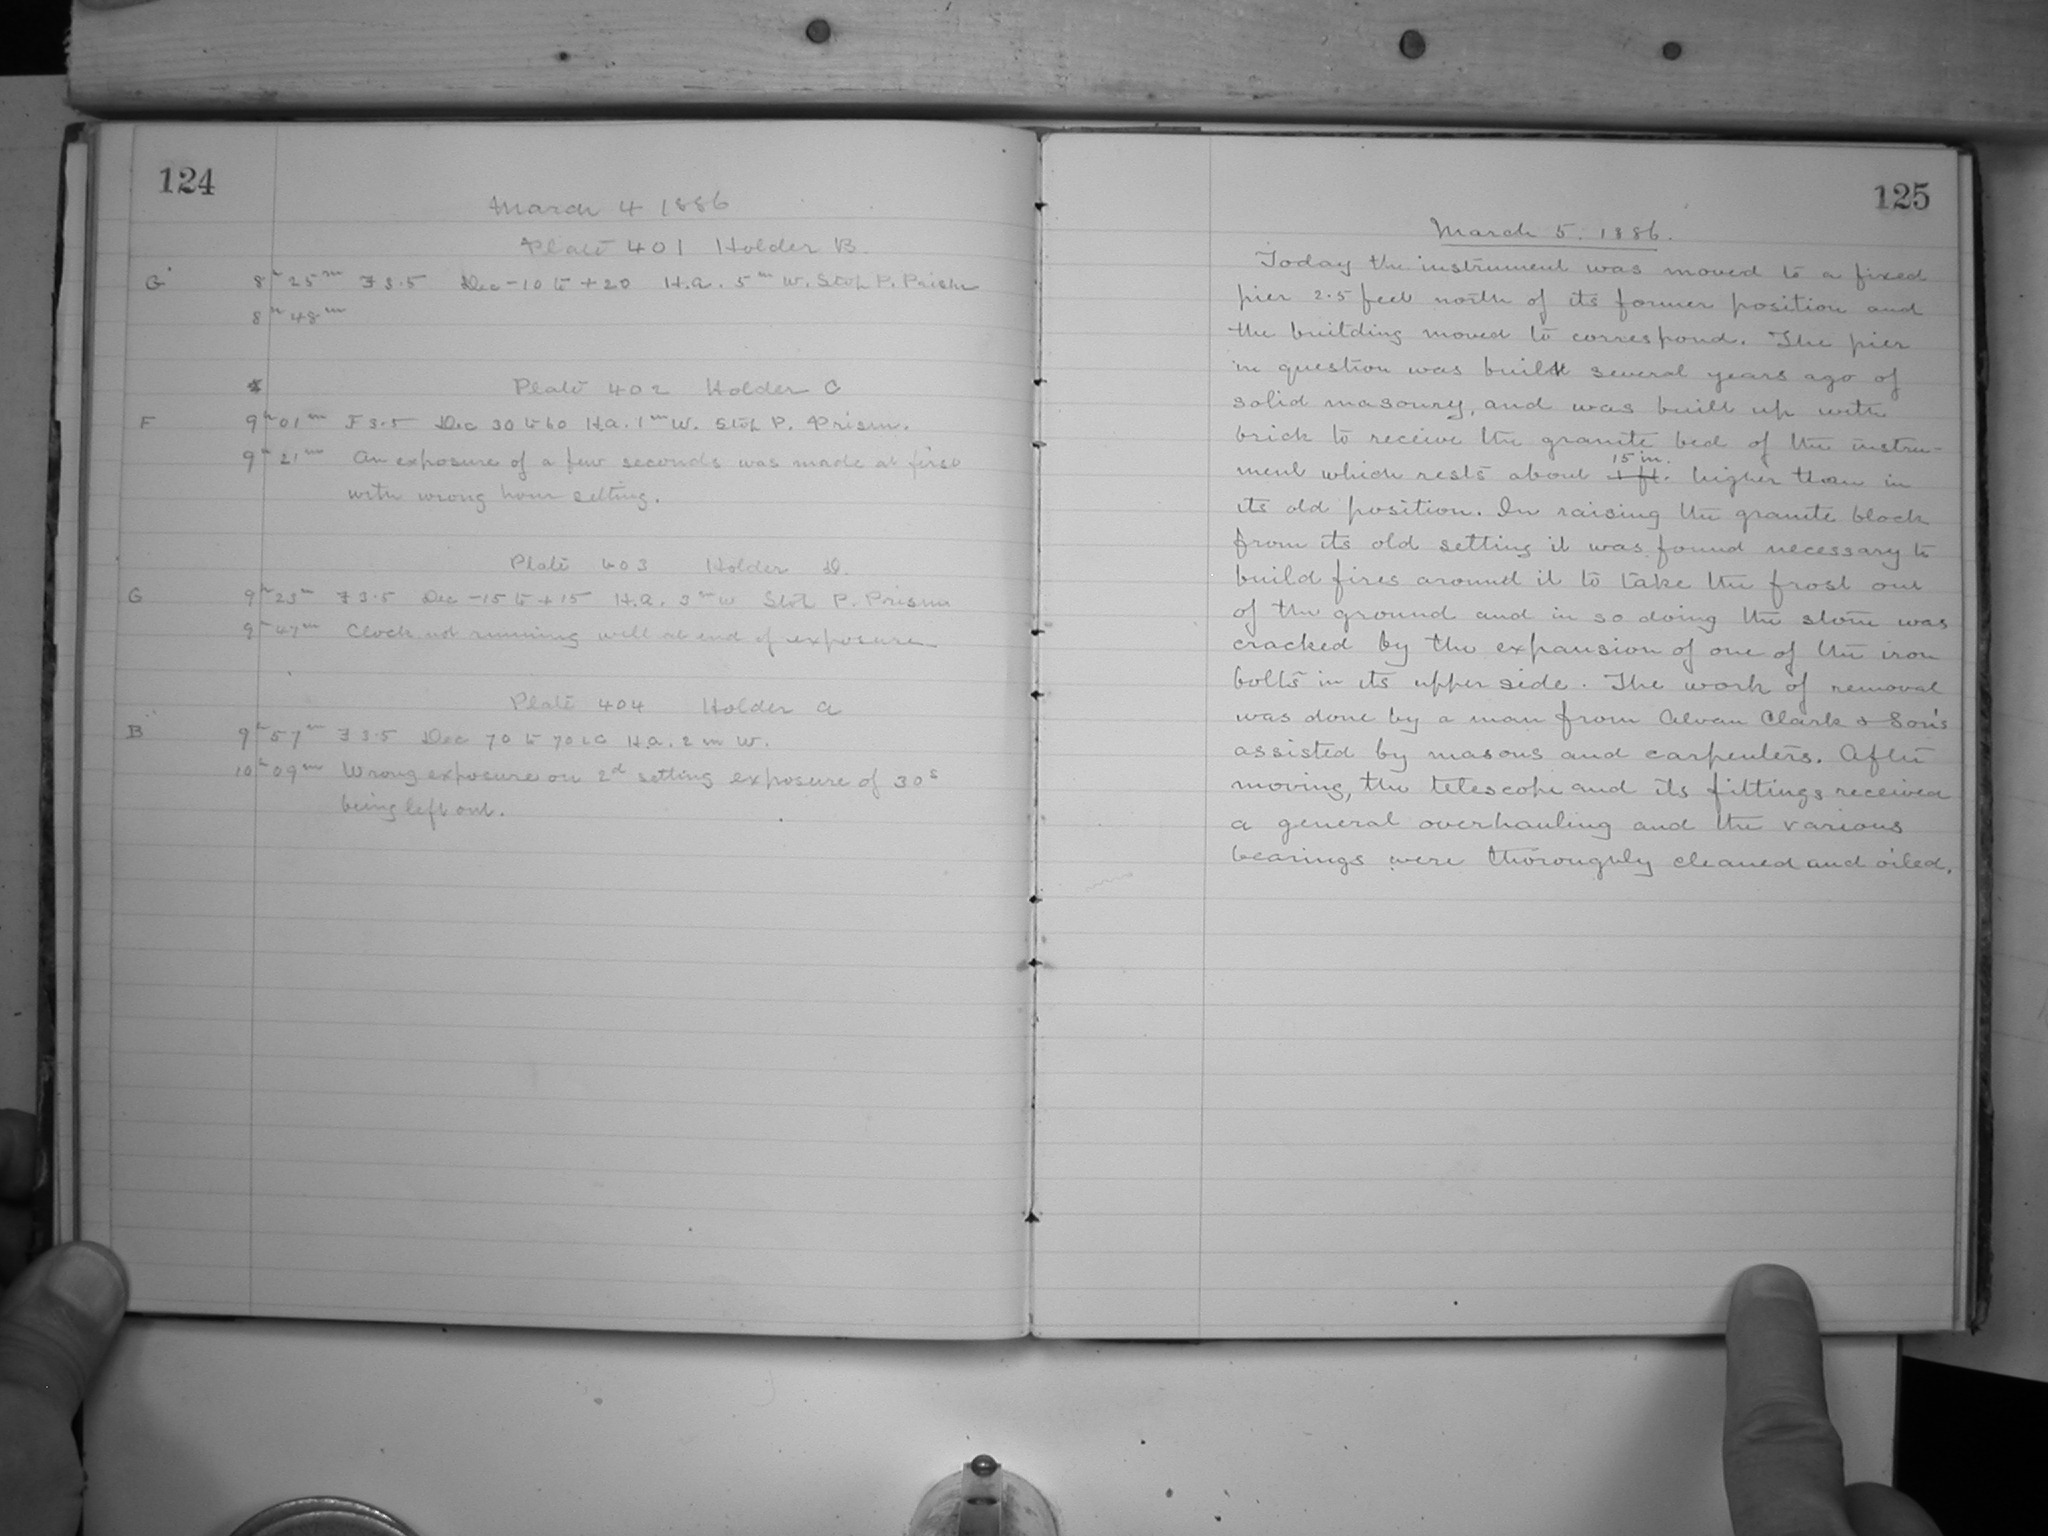 124
March 4 1886
Plate 401 Holder B.
G 8h 25m F 3.5 Dec -10 to +20 H.a. 5m W. Stop P. Prism
8h 48m
Plate 402 Holder C
F 9h 01m F 3.5 Dec 30 to 60 H.a. 1m W. Stop P. Prism.
9h 21m An exposure of a few seconds was made at first
with wrong hour setting.
Plate 403 Holder D.
G 9h 23m F 3.5 Dec -15 to +15 H.a. 3m W Stop P. Prism
9h 47m Clock not running well at end of exposure
Plate 404 Holder A
B 9h 57m F 3.5 Dec 70 to 70 H.a. 2m W.
10h 09m Wrong exposure on 2d setting exposure of 30s
being left out.
125
March 5. 1886.
Today the instrument was moved to a fixed
pier 2.5 feet north of its former position and
the building moved to correspond. The pier
in question was built several years ago of
solid masonry, and was built up with
brick to receive the granite bed of the instru-
ment which rests about 1 ft. 15 in. higher than in
its old position. In raising the granite block
from its old setting it was found necessary to
build fires around it to take the frost out
of the ground and in so doing the stone was
cracked by the expansion of one of the iron
bolts in its upper side. The work of removal
was done by a man from Alvan Clark & Son's
assisted by masons and carpenters. After
moving, the telescope and its fittings received
a general overhauling and the various
bearings were thoroughly cleaned and oiled.